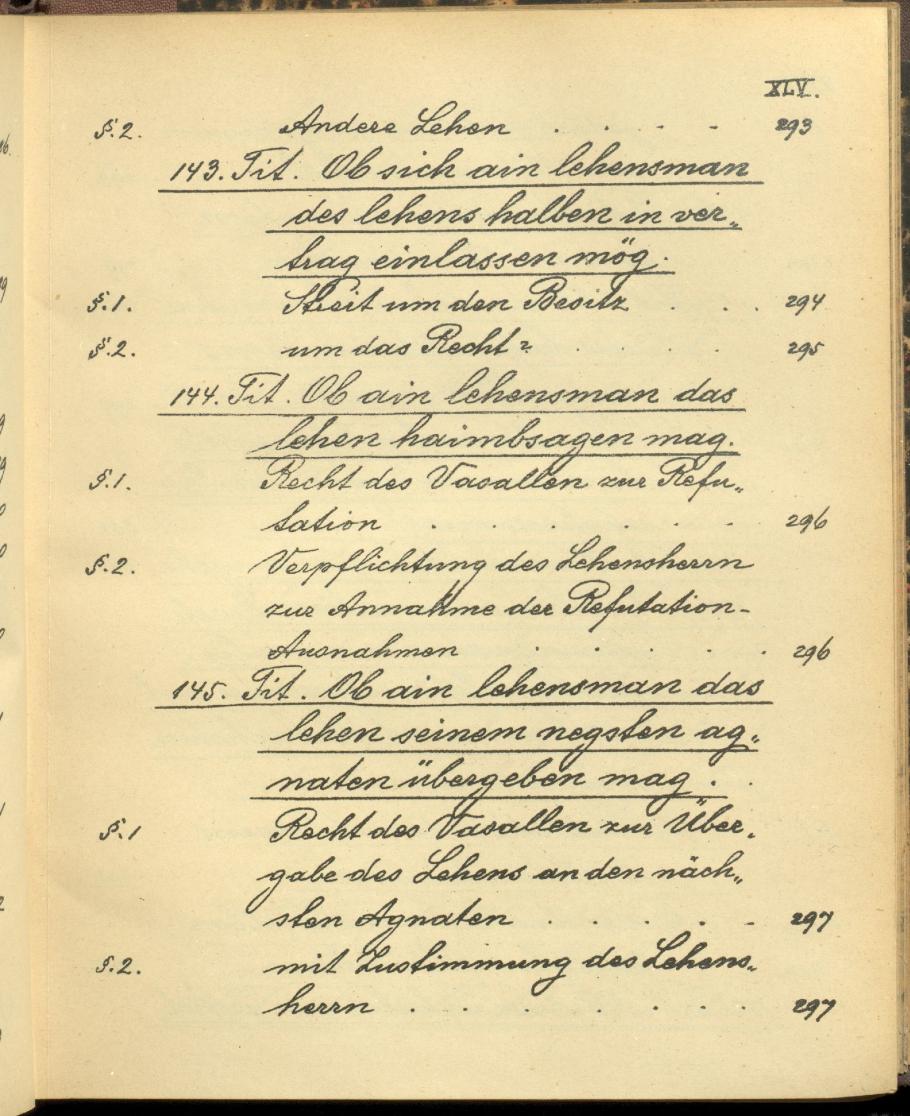 XLV.
§.2. Andere Lehen . . . . 293
143. Tit. Ob sich ain lehensman
des lehens halben in ver„
trag einlassen mög.
§.1. Streit um den Besitz . . . 294
§.2. um das Recht? . . . . 295
144. Tit. Ob ain lehensman das
lehen haimbsagen mag.
§.1. Recht des Vasallen zur Refu„
tation . . . . . . . 296
§.2. Verpflichtung des Lehensherrn
zur Annahme der Refutation-
Ausnahmen . . . . . 296
145. Tit. Ob ain lehensman das
lehen seinem negsten ag„
naten übergeben mag . .
§.1 Recht des Vasallen zur Über„
gabe des Lehens an den näch„
sten Agnaten . . . . . 297
§.2. mit Zustimmung des Lehens„
herrn . . . . . . . 297